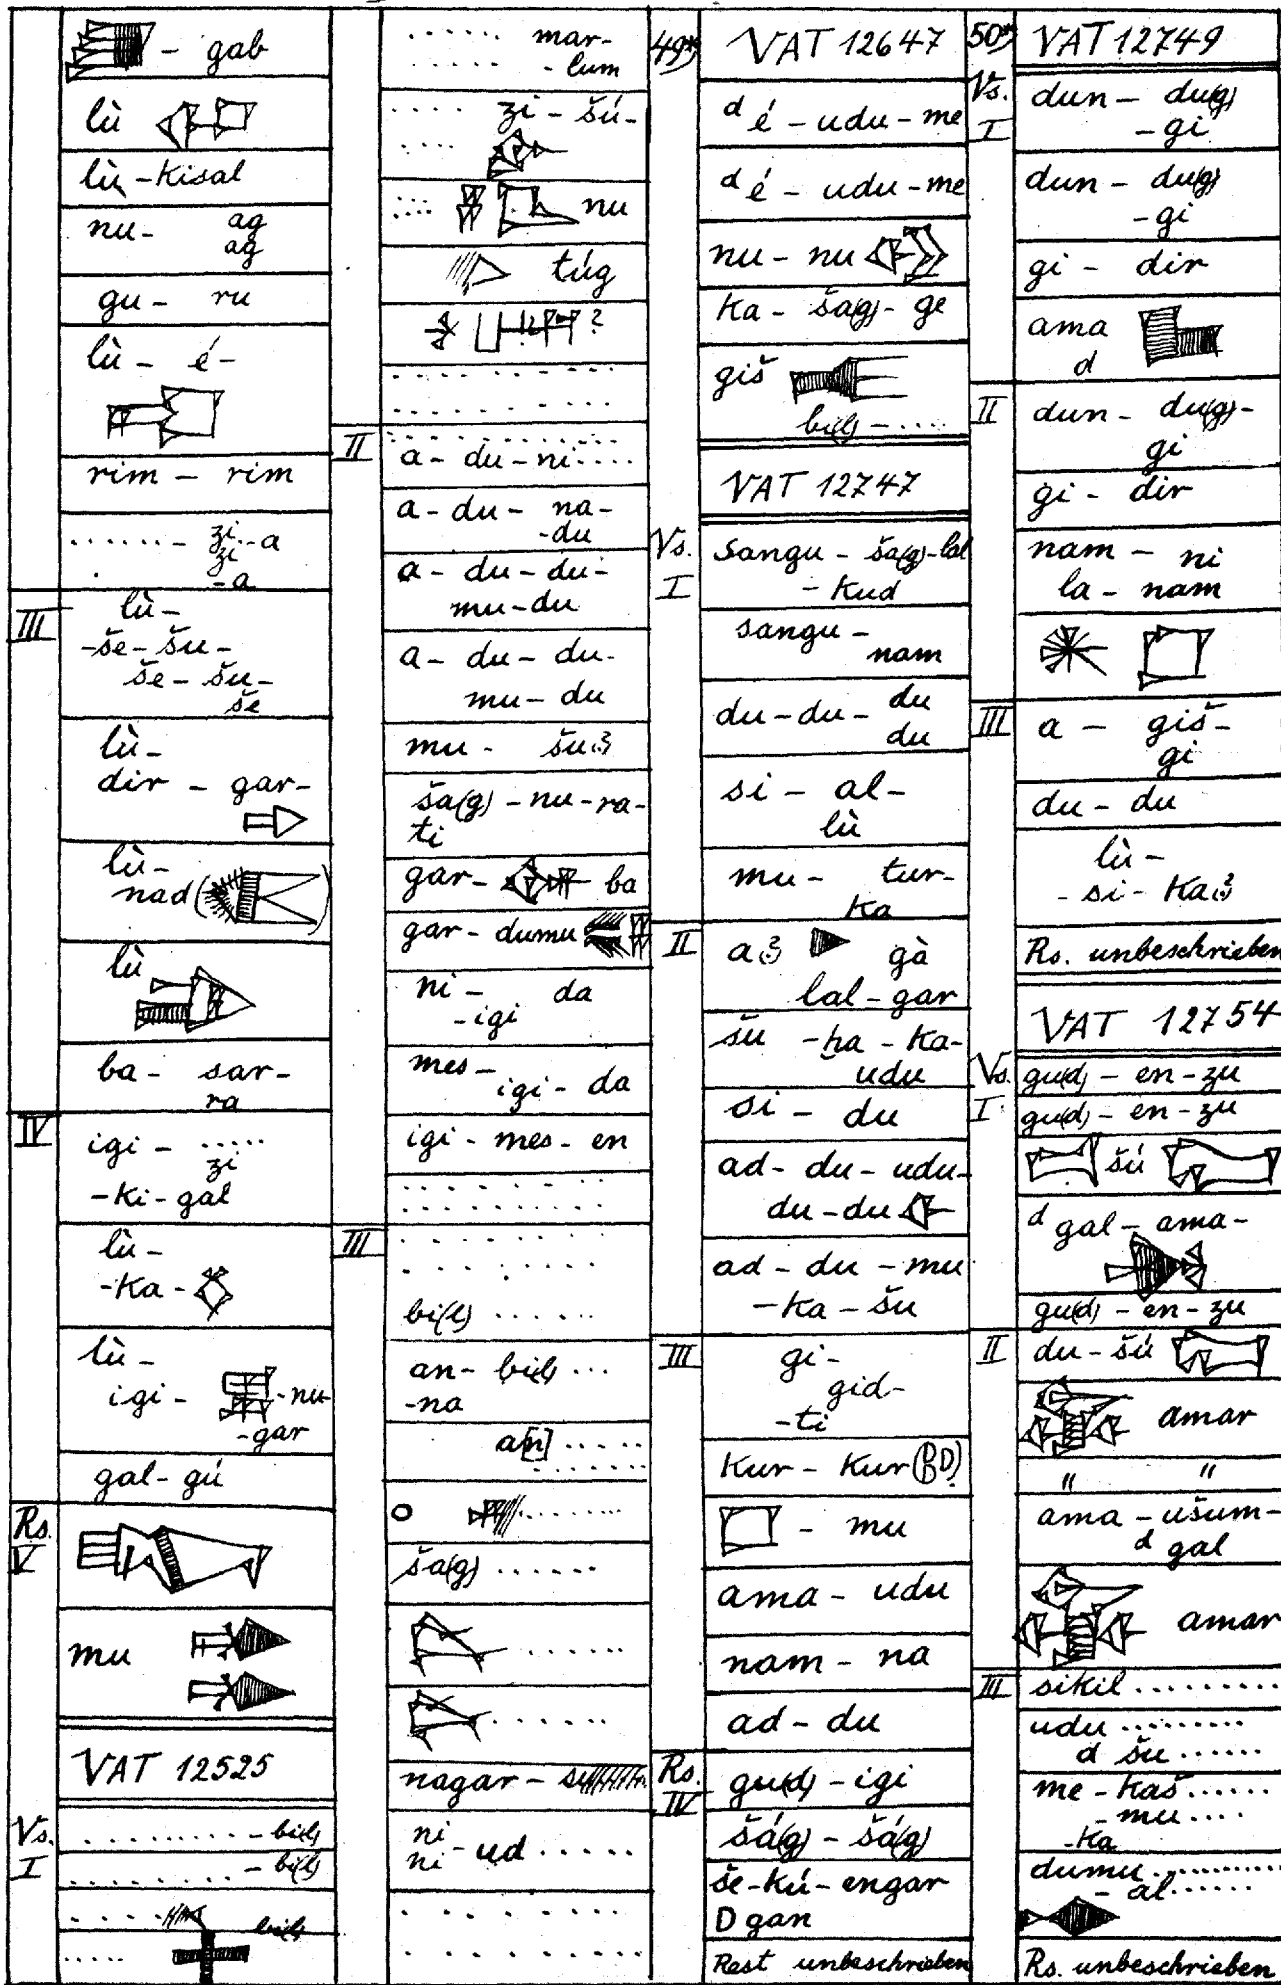 - gab
lù
lù - Kisal
nu- ag
ag
gu - ru
lù - é -
rim - rim
....... - zi - a
zi
- a
III
lù -
- še - šu -
še - šu -
še
lù -
dir - gar -
lù -
nad ( )
lù
ba - sar -
ra
IV
igi - .....
zi
- Ki - gal
lù -
- Ka -
lù -
igi - - nu -
- gar
gal - gú
Rs.
V
mu
VAT 12525
Vs.
I
......... - bi(l)
......... - bi(l)
..... bi(l)
....
...... mar-
...... - lum
.... zi - šú -
....
.... nu
túg
?
..........
..........
II
..........
a - du - ni....
a - du - na -
- du
a - du - du -
mu - du
a - du - du -
mu - du
mu - šu ?
ša(g) - nu - ra -
ti
gar - ba
gar - dumu
ni - da
- igi
mes -
igi - da
igi - mes - en
..........
..........
III
..........
..........
bi(l) ......
an - bi(l) ...
- na
a[n] .....
......
.....
ša(g) ......
.....
.....
nagar -
ni
ni - ud .....
..........
..........
49*)
VAT 12647
d é - udu - me
d é - udu - me
nu - nu
Ka - ša(g) - ge
giš
bi(l) - ....
VAT 12747
Vs.
I
sangu - ša(g) - lal
- Kud
sangu -
nam
du - du - du
du
si - al -
lù
mu - tur -
Ka
II
a ? gà
lal - gar
šu - ḫa - Ka -
udu
si - du
ad - du - udu -
du - du
ad - du - mu
- Ka - šu
III
gi -
gid -
- ti
Kur - Kur
- mu
ama - udu
nam - na
ad - du
Rs.
IV
gu(d) - igi
šá(g) - šá(g)
še - kú - engar
D gan
Rest unbeschrieben
50*)
VAT 12749
Vs.
I
dun - du(g)
- gi
dun - du(g)
- gi
gi - dir
ama
d
II
dun - du(g) -
gi
gi - dir
nam - ni
la - nam
III
a - giš -
gi
du - du
lù -
- si - Ka ?
Rs. unbeschrieben
VAT 12754
Vs.
I
gu(d) - en - zu
gu(d) - en - zu
šú
d gal - ama -
gu(d) - en - zu
II
du - šú
amar
" "
ama - ušum -
d gal
amar
III
sikil .........
udu ........
d šu ......
me - Kaš ......
- mu ....
- Ka
dumu ..........
- al ......
Rs. unbeschrieben